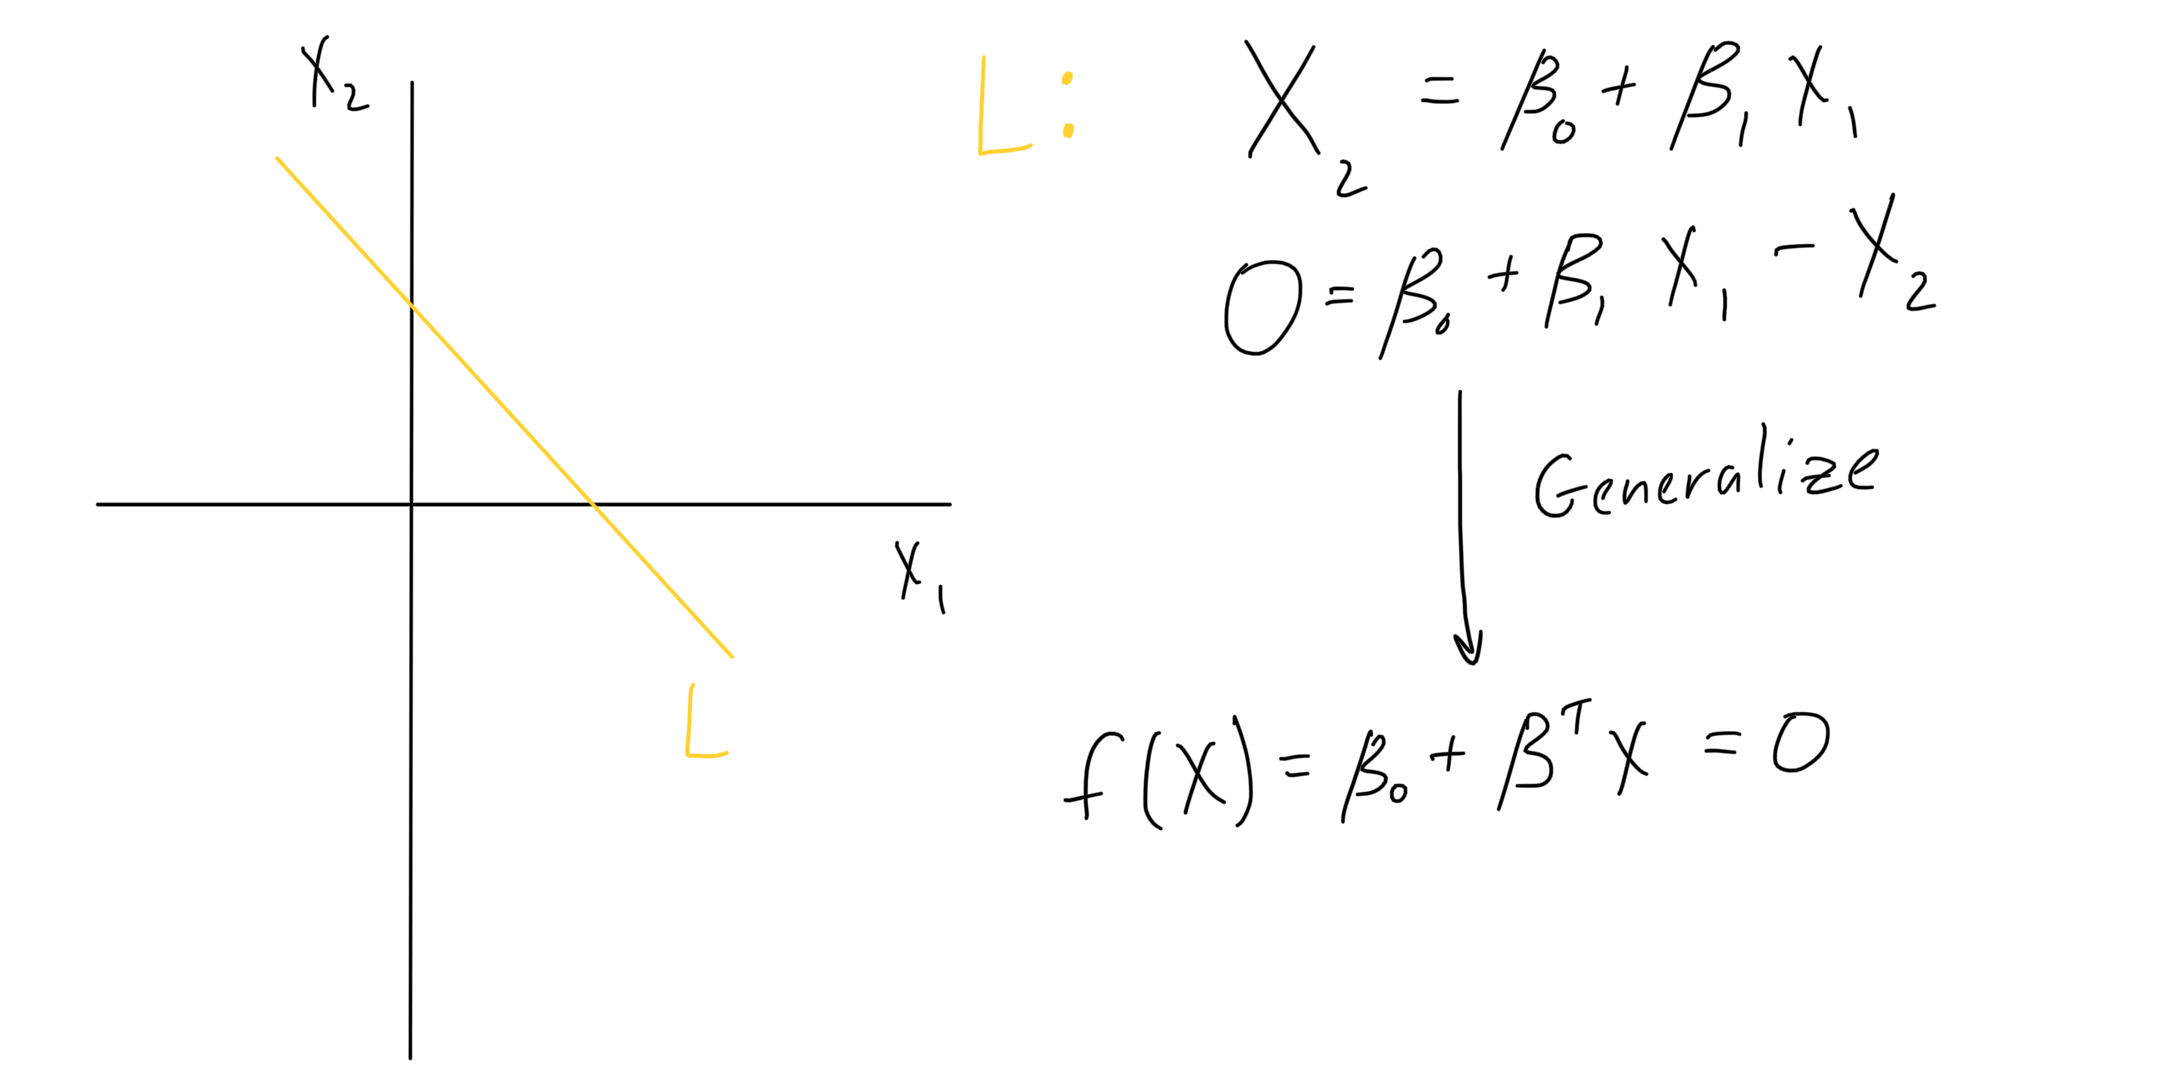 X₂
X₁
L
L: X₂ = β₀ + β₁ X₁
0 = β₀ + β₁ X₁ - X₂
Generalize
f(X) = β₀ + βᵀ X = 0